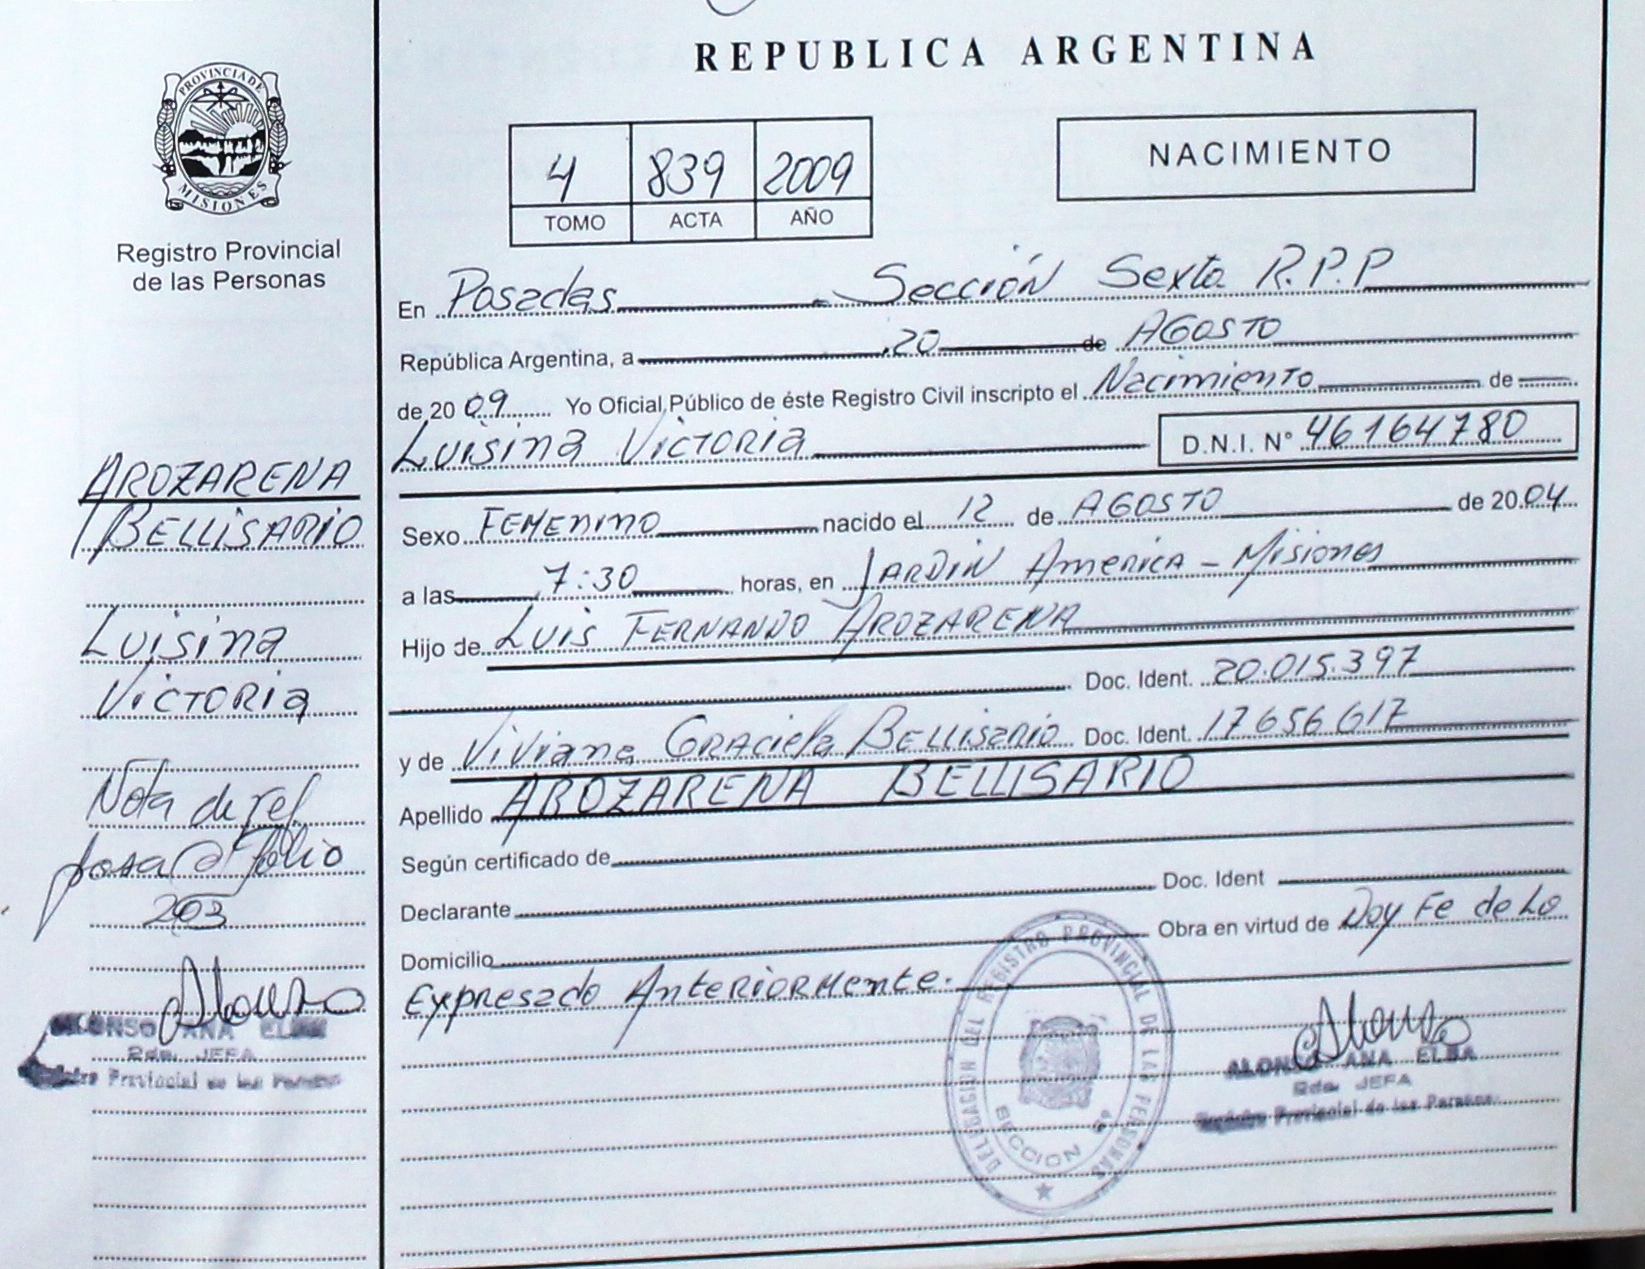 REPUBLICA ARGENTINA
PROVINCIA DE
MISIONES
Registro Provincial
de las Personas
4 839 2009
TOMO ACTA AÑO
NACIMIENTO
En Posadas Sección Sexta R.P.P
República Argentina, a 20 de AGOSTO
de 20 09 Yo Oficial Público de éste Registro Civil inscripto el Nacimiento de
Luisina Victoria D.N.I. N° 46164780
Sexo FEMENINO nacido el 12 de AGOSTO de 20 04
a las 7:30 horas, en JARDIN AMERICA - Misiones
Hijo de LUIS FERNANDO AROZARENA
Doc. Ident. 20.015.397
y de Viviana Graciela Bellisario Doc. Ident. 17656617
Apellido AROZARENA BELLISARIO
Según certificado de
Declarante Doc. Ident
Domicilio Obra en virtud de Doy Fe de Lo
Expresado Anteriormente.
AROZARENA
BELLISARIO
Luisina
Victoria
Nota de ref.
Folio
203
ALONSO ANA ELBA
Rda. JEFA
Registro Provincial de las Personas
DELEGACION DEL REGISTRO PROVINCIAL DE LAS PERSONAS
SECCION 6°
ALONSO ANA ELBA
Rda. JEFA
Registro Provincial de las Personas